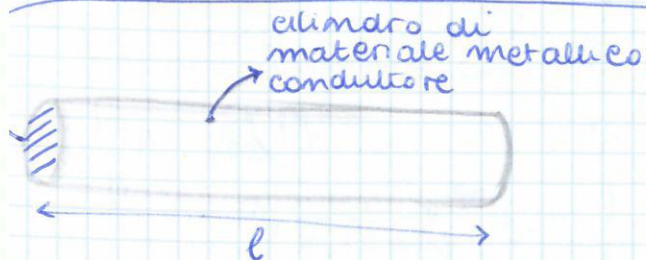 cilindro di
materiale metallico
conduttore
l